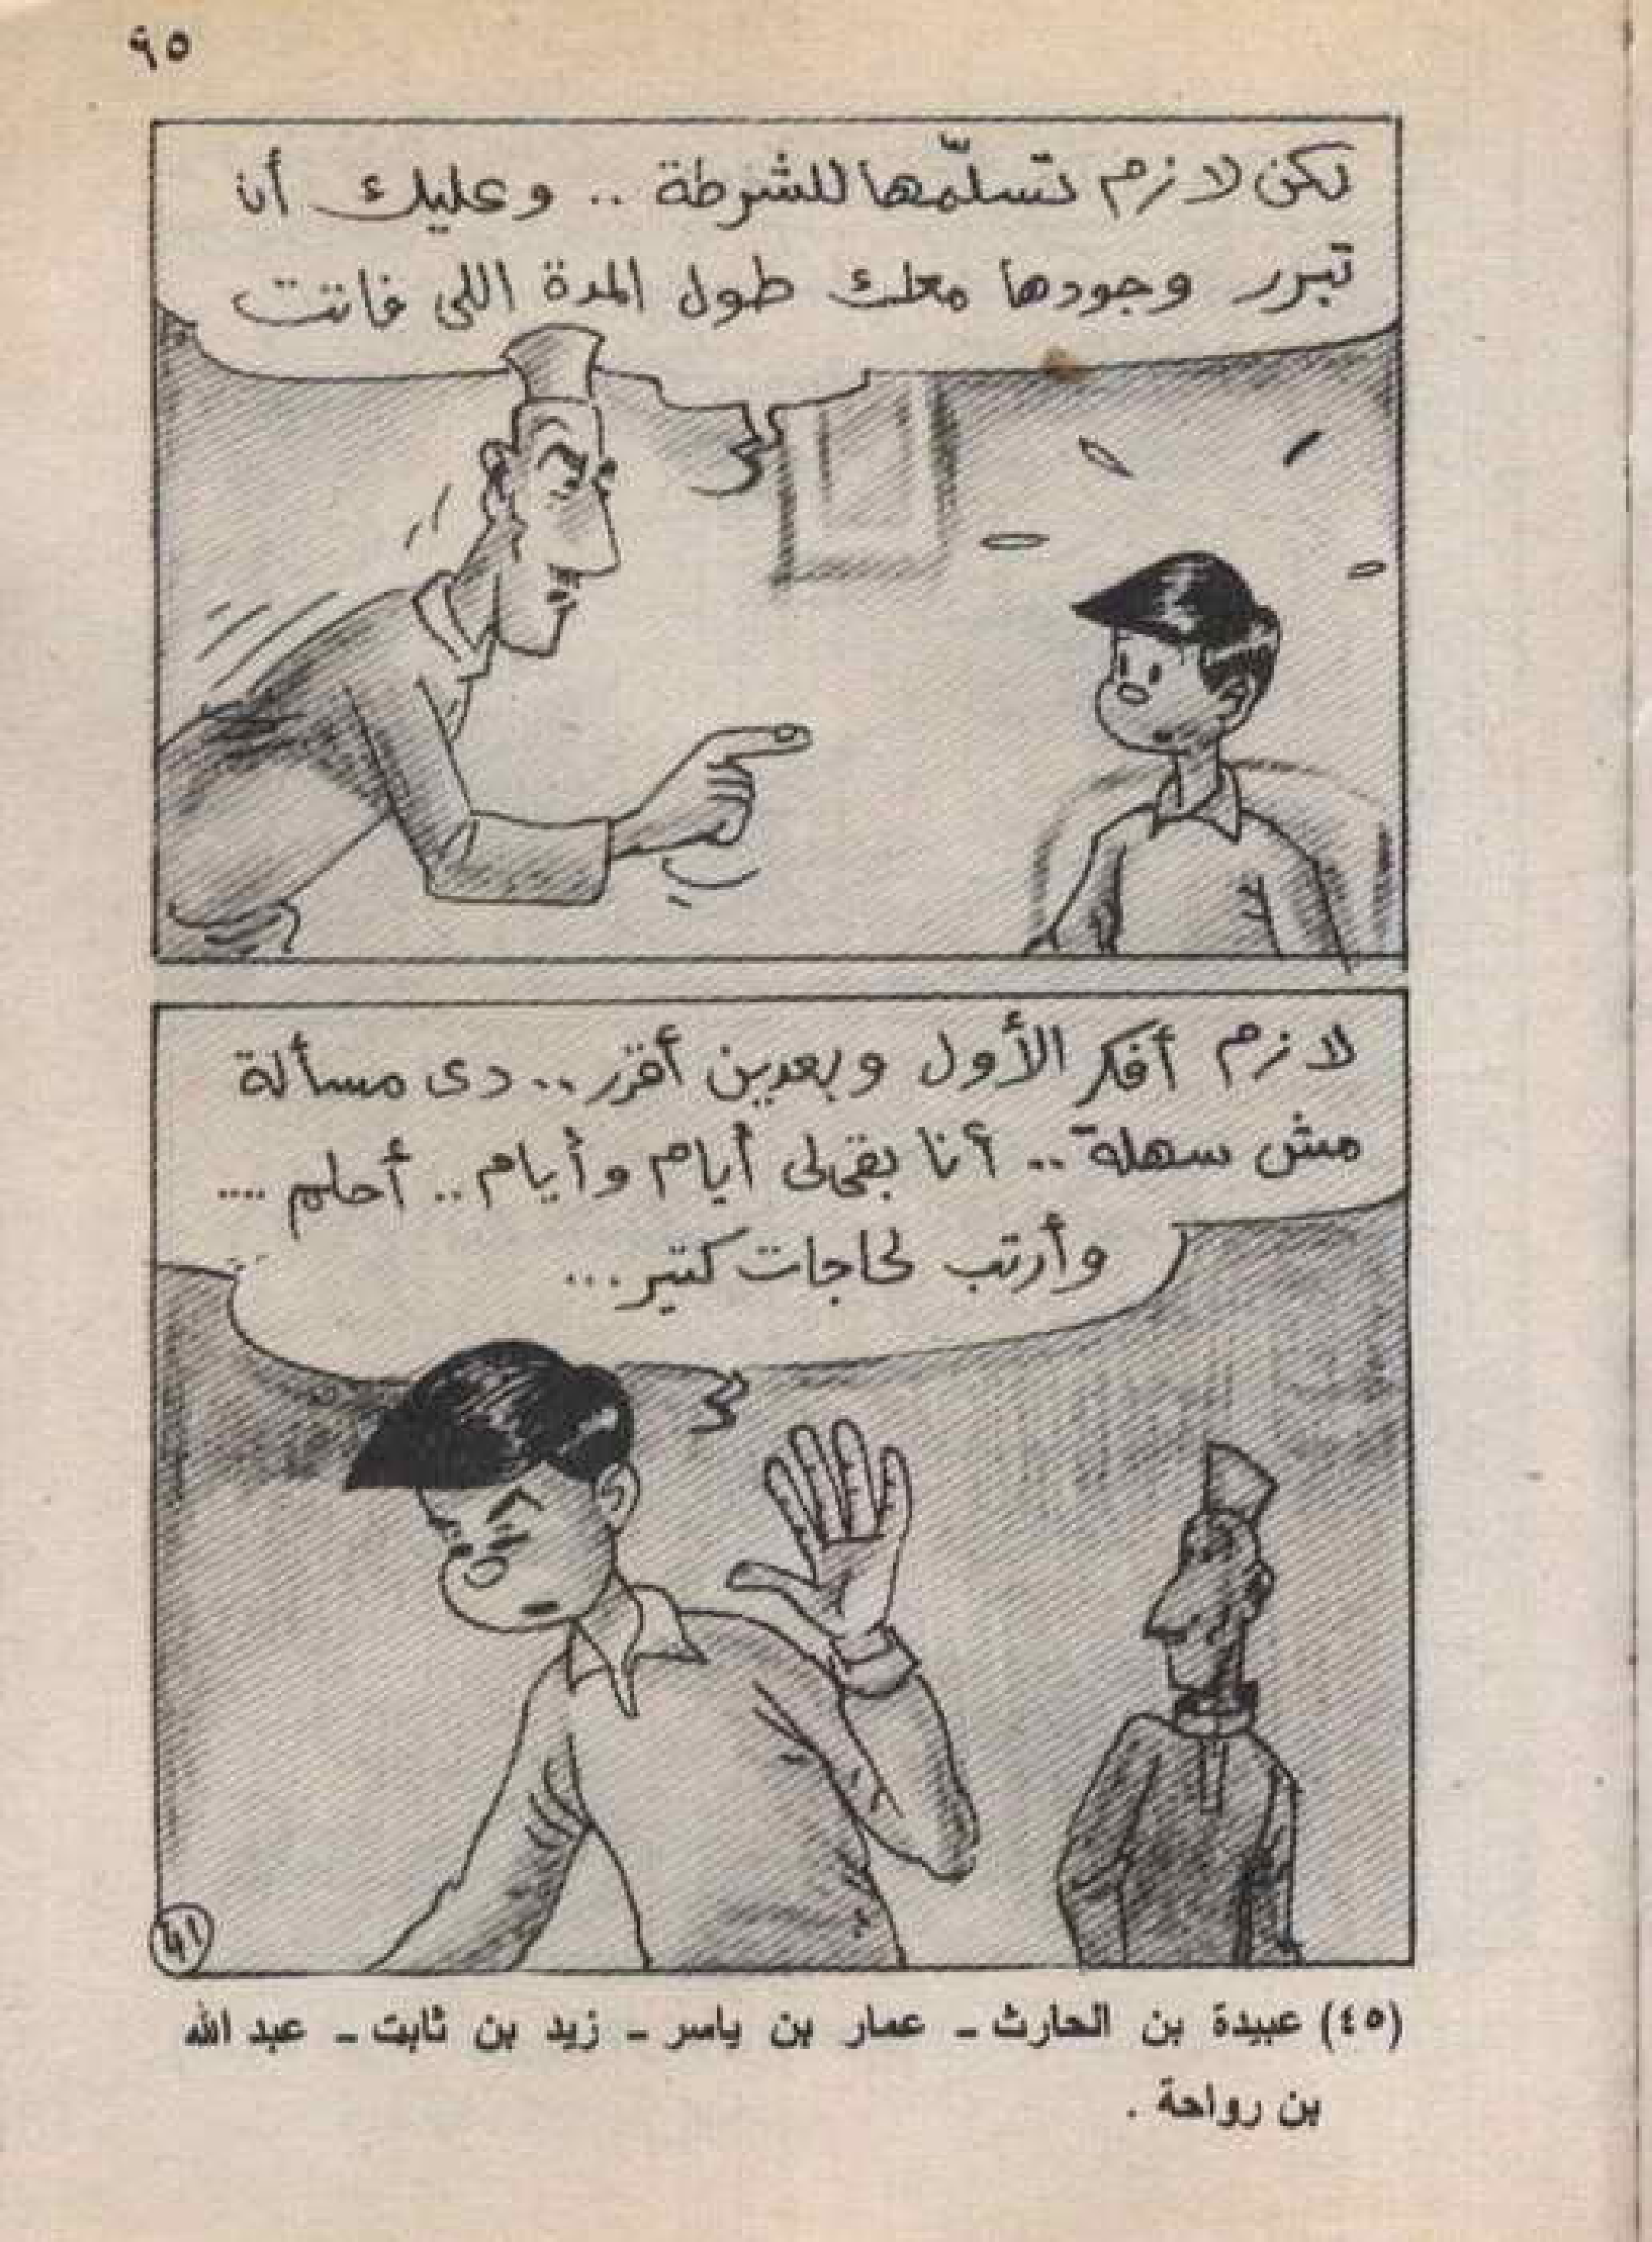 ٩٥
لكن لازم تسلّمها للشرطة .. وعليك أن
تبرر وجودها معك طول المدة اللى فاتت
لازم أفكر الأول وبعدين أقرر .. دى مسألة
مش سهلة .. أنا بقى لى أيام وأيام .. أحلم ....
وأرتب لحاجات كتير ...
٤١
(٤٥) عبيدة بن الحارث ـ عمار بن ياسر ـ زيد بن ثابت ـ عبد الله
بن رواحة .